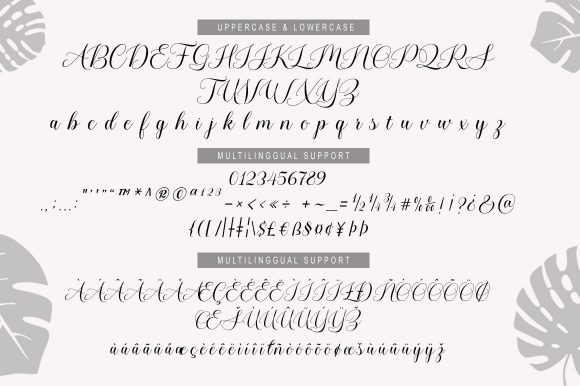 UPPERCASE & LOWERCASE
ABCDEFGHIJKLMNOPQRS
TUVWXYZ
a b c d e f g h i j k l m n o p q r s t u v w x y z
MULTILINGGUAL SUPPORT
0123456789
.,;...: "''"" ™*^®©ª123 -×<<«÷ +~_=½¼¾#%‰!¡?¿&@
{([/|‡‡¦\$£€ß§¤¢¥Þþ
MULTILINGGUAL SUPPORT
ÀÁÂÃÄÅÆÇÈÉÊËÌÍÎÏŁÐÑÒÓÔÕÖØ
ŒŠÙÚÛÜÝŸŽ
àáâãäåæçèéêëìíîïłñòóôõöøœšùúûüýÿž